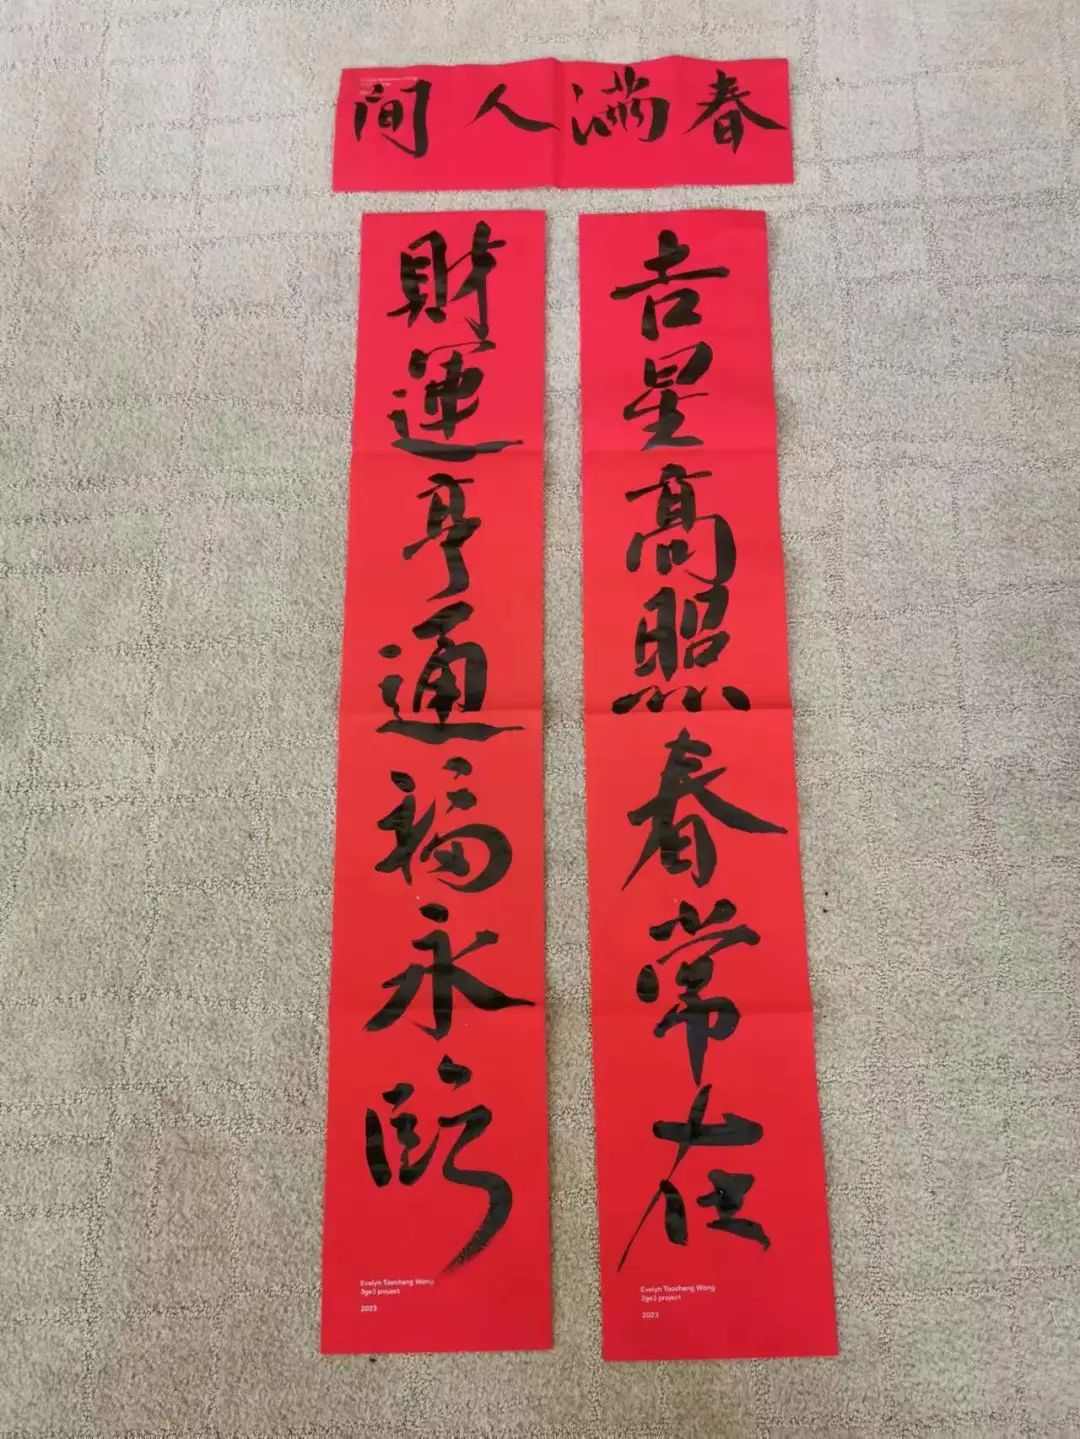 春滿人間
吉星高照春常在
財運亨通福永臨
Evelyn Taocheng Wang
3ge3 project
2023
Evelyn Taocheng Wang
3ge3 project
2023